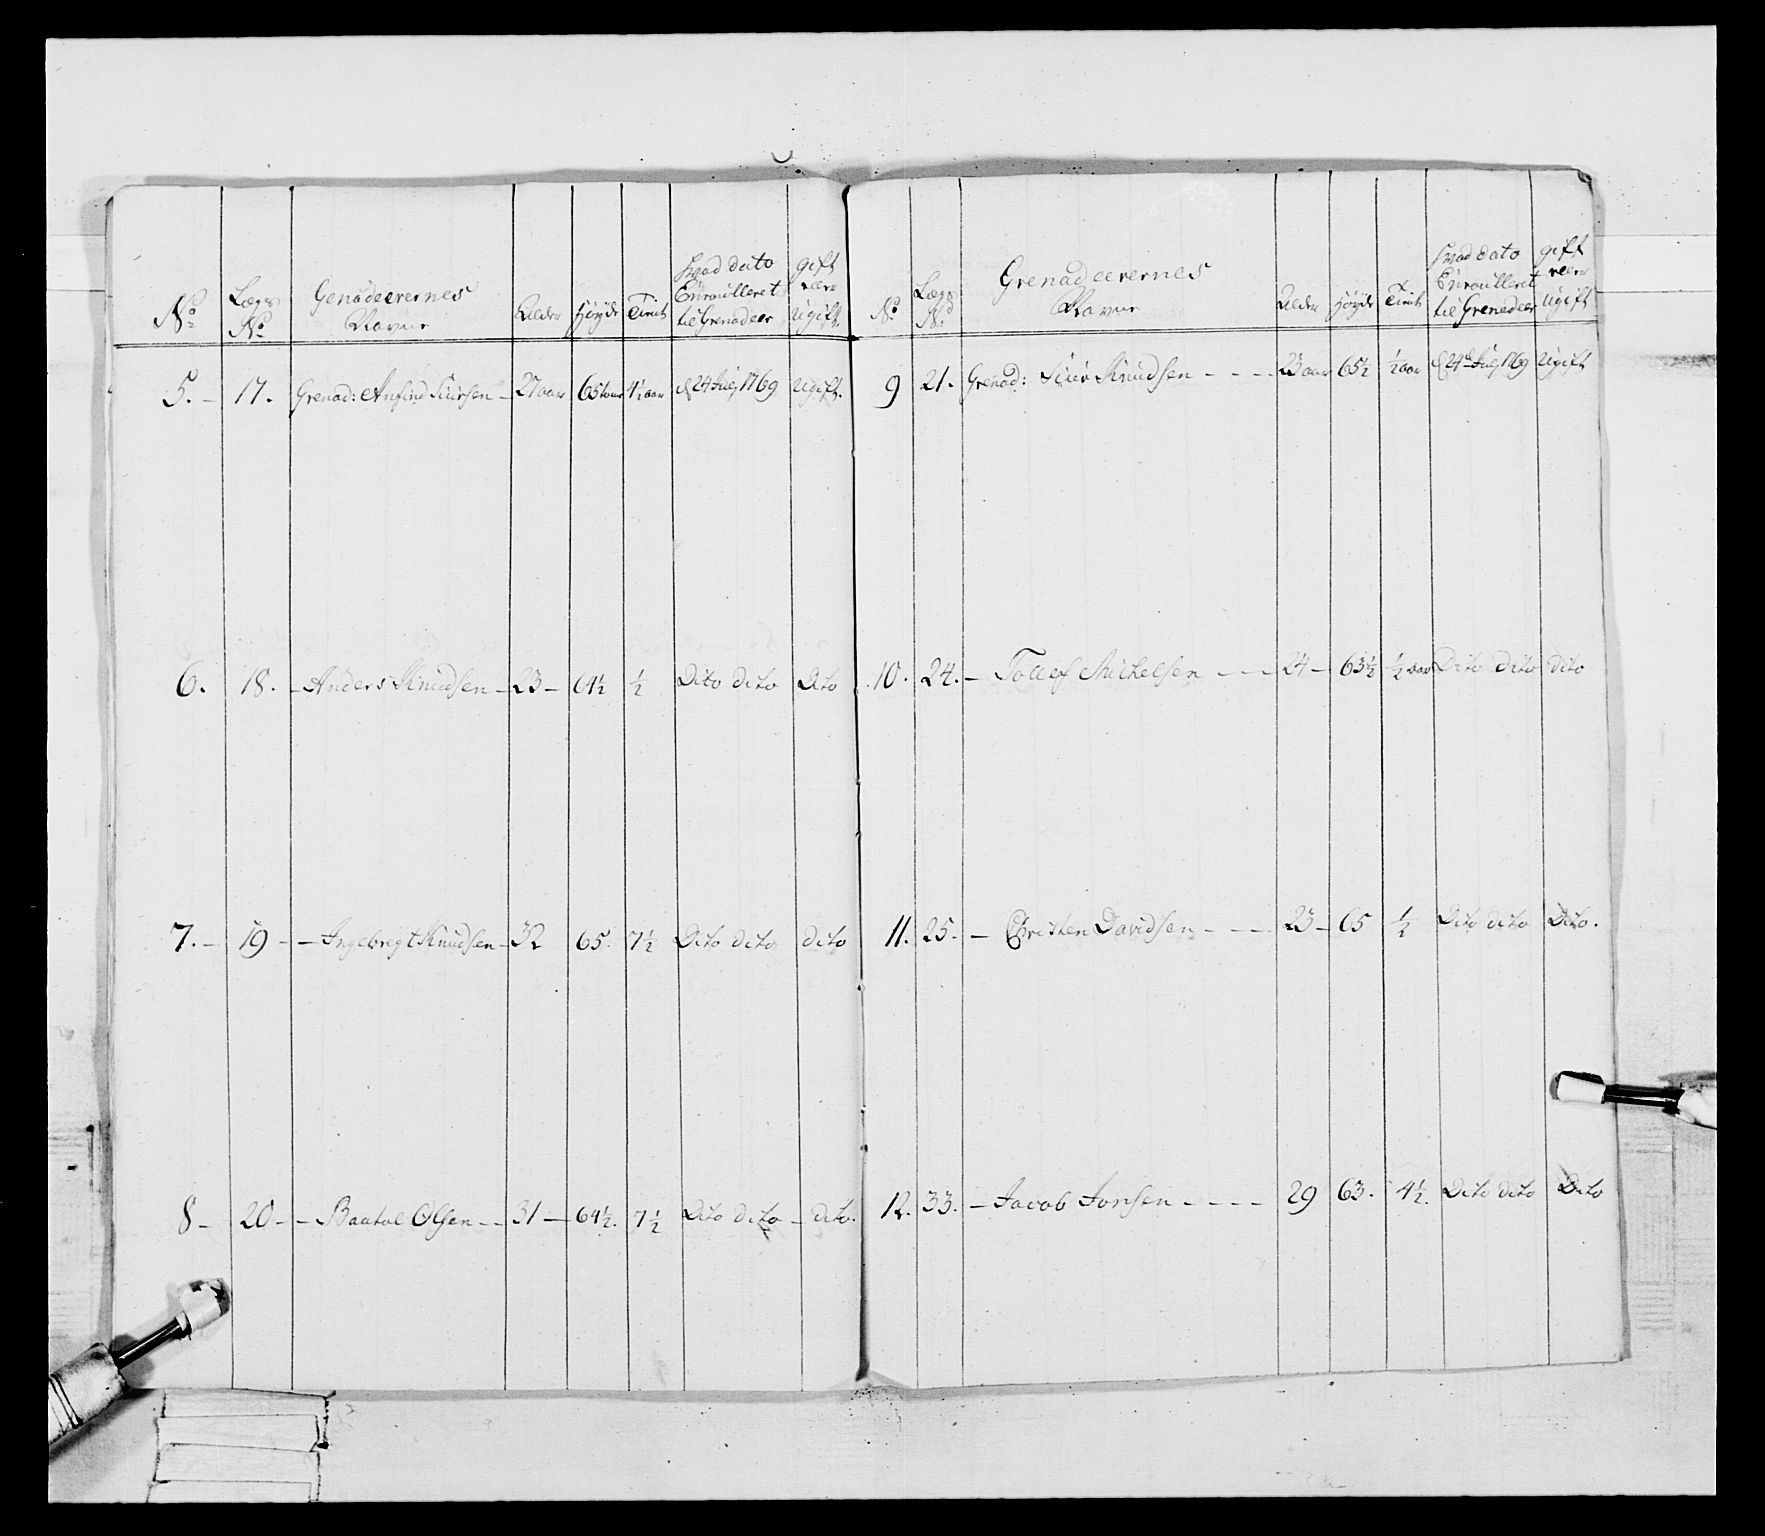 No Lægs No Genadeerernes Navne Alder Høyde Tient Hvad dato Enroulleret til Grenadeer gift eller Ugift
5. 17. Grenad: Anfind Siursen 27 aar 65 tom 4½ aar d 24 July 1769 Ugift.
6. 18. Anders Knudsen 23 64½ ½ Dito dito Dito
7. 19 Ingebrigt Knudsen 32 65. 7½ Dito dito dito
8 20 Baatol Olsen 31 64½. 7½ Dito dito dito.
No Lægs No Grenadeerernes Navne Alder Høyde Tient Hvad dato Enroulleret til Grenadeer gift eller Ugift
9 21. Grenad: Siur Knudsen 23 aar 65½ ½ aar d 24de July 1769 Ugift
10. 24. Tollef Michelsen 24 63½ ½ aar Dito dito dito
11. 25. Christen Davidsen 23 65 ½ Dito dito Dito.
12. 33. Jacob Jonsen 29 63. 4½. Dito dito Dito